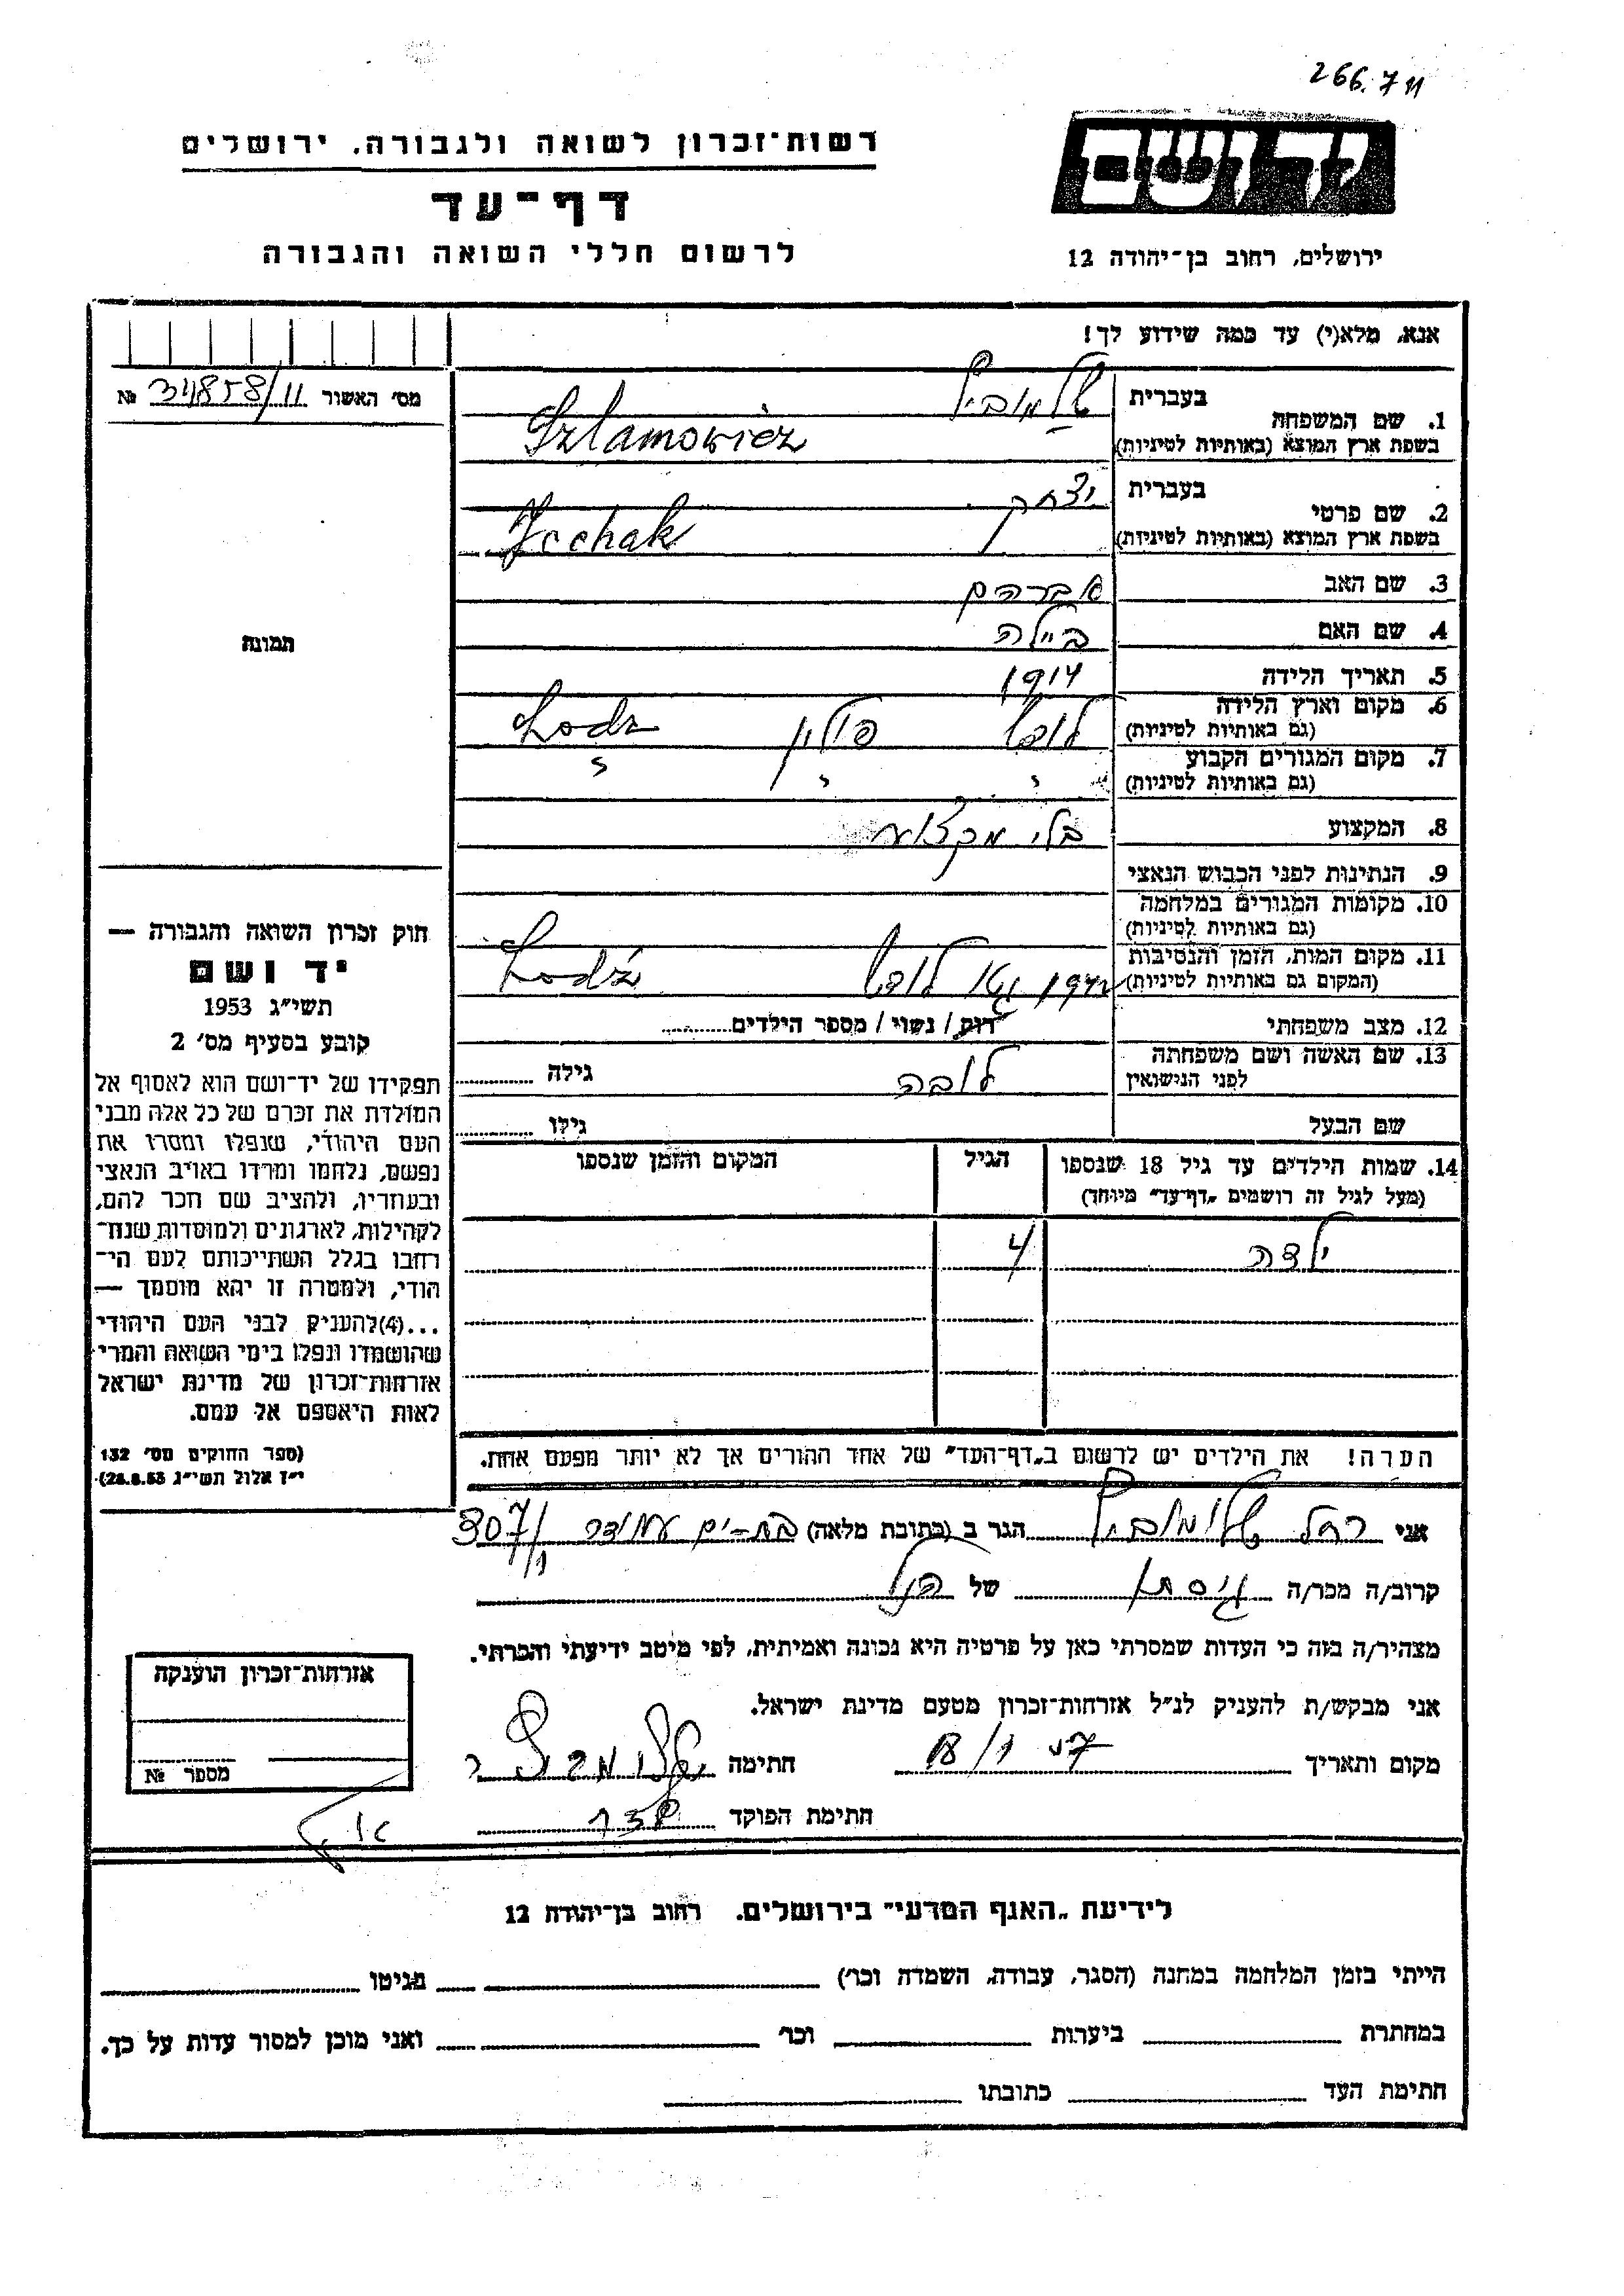 266.711
יד ושם
רשות־זכרון לשואה ולגבורה, ירושלים
דף־עד
לרשום חללי השואה והגבורה
ירושלים, רחוב בן־יהודה 12
אנא, מלא(י) עד כמה שידוע לך!
מס' האשור № 34858/11
תמונה
בעברית
1. שם המשפחה
בשפת ארץ המוצא (באותיות לטיניות) Szlamowicz
בעברית יצחק
2. שם פרטי
בשפת ארץ המוצא (באותיות לטיניות) Icchak
3. שם האב אברהם
4. שם האם ביילה
5. תאריך הלידה 1914
6. מקום וארץ הלידה לודז' פולין Lodz
(גם באותיות לטיניות)
7. מקום המגורים הקבוע
(גם באותיות לטיניות)
8. המקצוע בלי מקצוע
9. הנתינות לפני הכבוש הנאצי
10. מקומות המגורים במלחמה
(גם באותיות לטיניות)
11. מקום המות, הזמן והנסיבות לודז' Lodz
(המקום גם באותיות לטיניות)
12. מצב משפחתי רוק / נשוי / מספר הילדים
13. שם האשה ושם משפחתה לובה גילה
לפני הנישואין
שם הבעל גילו
14. שמות הילדים עד גיל 18 שנספו הגיל המקום והזמן שנספו
(מעל לגיל זה רושמים „דף־עד" מיוחד)
ילדה 4
הערה! את הילדים יש לרשום ב„דף־העד" של אחד ההורים אך לא יותר מפעם אחת.
חוק זכרון השואה והגבורה —
יד ושם
תשי"ג 1953
קובע בסעיף מס' 2
תפקידו של יד־ושם הוא לאסוף אל
המולדת את זכרם של כל אלה מבני
העם היהודי, שנפלו ומסרו את
נפשם, נלחמו ומרדו באויב הנאצי
ובעוזריו, ולהציב שם וזכר להם,
לקהילות, לארגונים ולמוסדות שנח־
רבו בגלל השתייכותם לעם הי־
הודי, ולמטרה זו יהא מוסמך —
...(4)להעניק לבני העם היהודי
שהושמדו ונפלו בימי השואה והמרי
אזרחות־זכרון של מדינת ישראל
לאות היאספם אל עמם.
(ספר החוקים מס' 132
י"ז אלול תשי"ג 28.8.53)
אני רחל שלומוביץ הגר ב (כתובת מלאה) בת-ים עמידר 307/1
קרוב/ה מכר/ה גיסתו של הנ"ל
מצהיר/ה בזה כי העדות שמסרתי כאן על פרטיה היא נכונה ואמיתית, לפי מיטב ידיעתי והכרתי.
אני מבקש/ת להעניק לנ"ל אזרחות־זכרון מטעם מדינת ישראל.
מקום ותאריך 18/1 57 חתימה
חתימת הפוקד
אזרחות־זכרון הוענקה
מספר №
לידיעת „האגף המדעי" בירושלים. רחוב בן־יהודה 12
הייתי בזמן המלחמה במחנה (הסגר, עבודה, השמדה וכו') בגיטו
במחתרת ביערות וכו' ואני מוכן למסור עדות על כך.
חתימת העד כתובתו